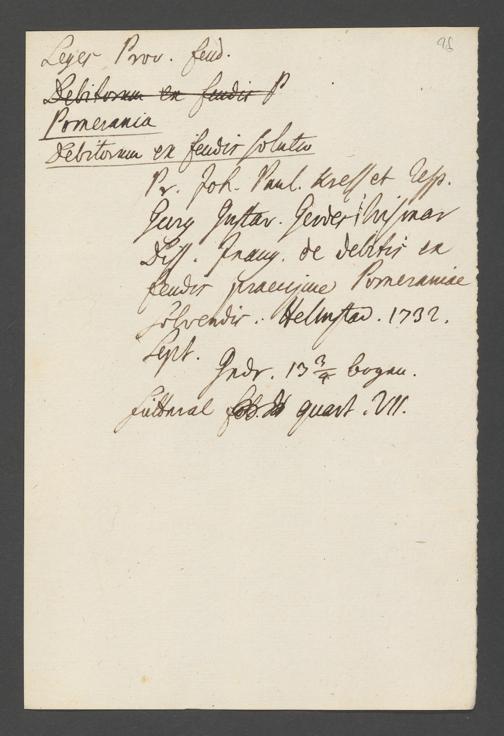 98
Leges Prov. feud.
Debitorum ex feudis P
Pomerania
Debitorum ex feudis solutio
Pr. Joh. Paul. Kress et Resp.
Georg Gustav. Gerdes Wismar
Diss. Inaug. de debitis ex
feudis praecipue Pomeraniae
solvendis. Helmstad. 1732.
Sept.
Gedr. 13 3/4 bogen.
Futteral quart. VII.